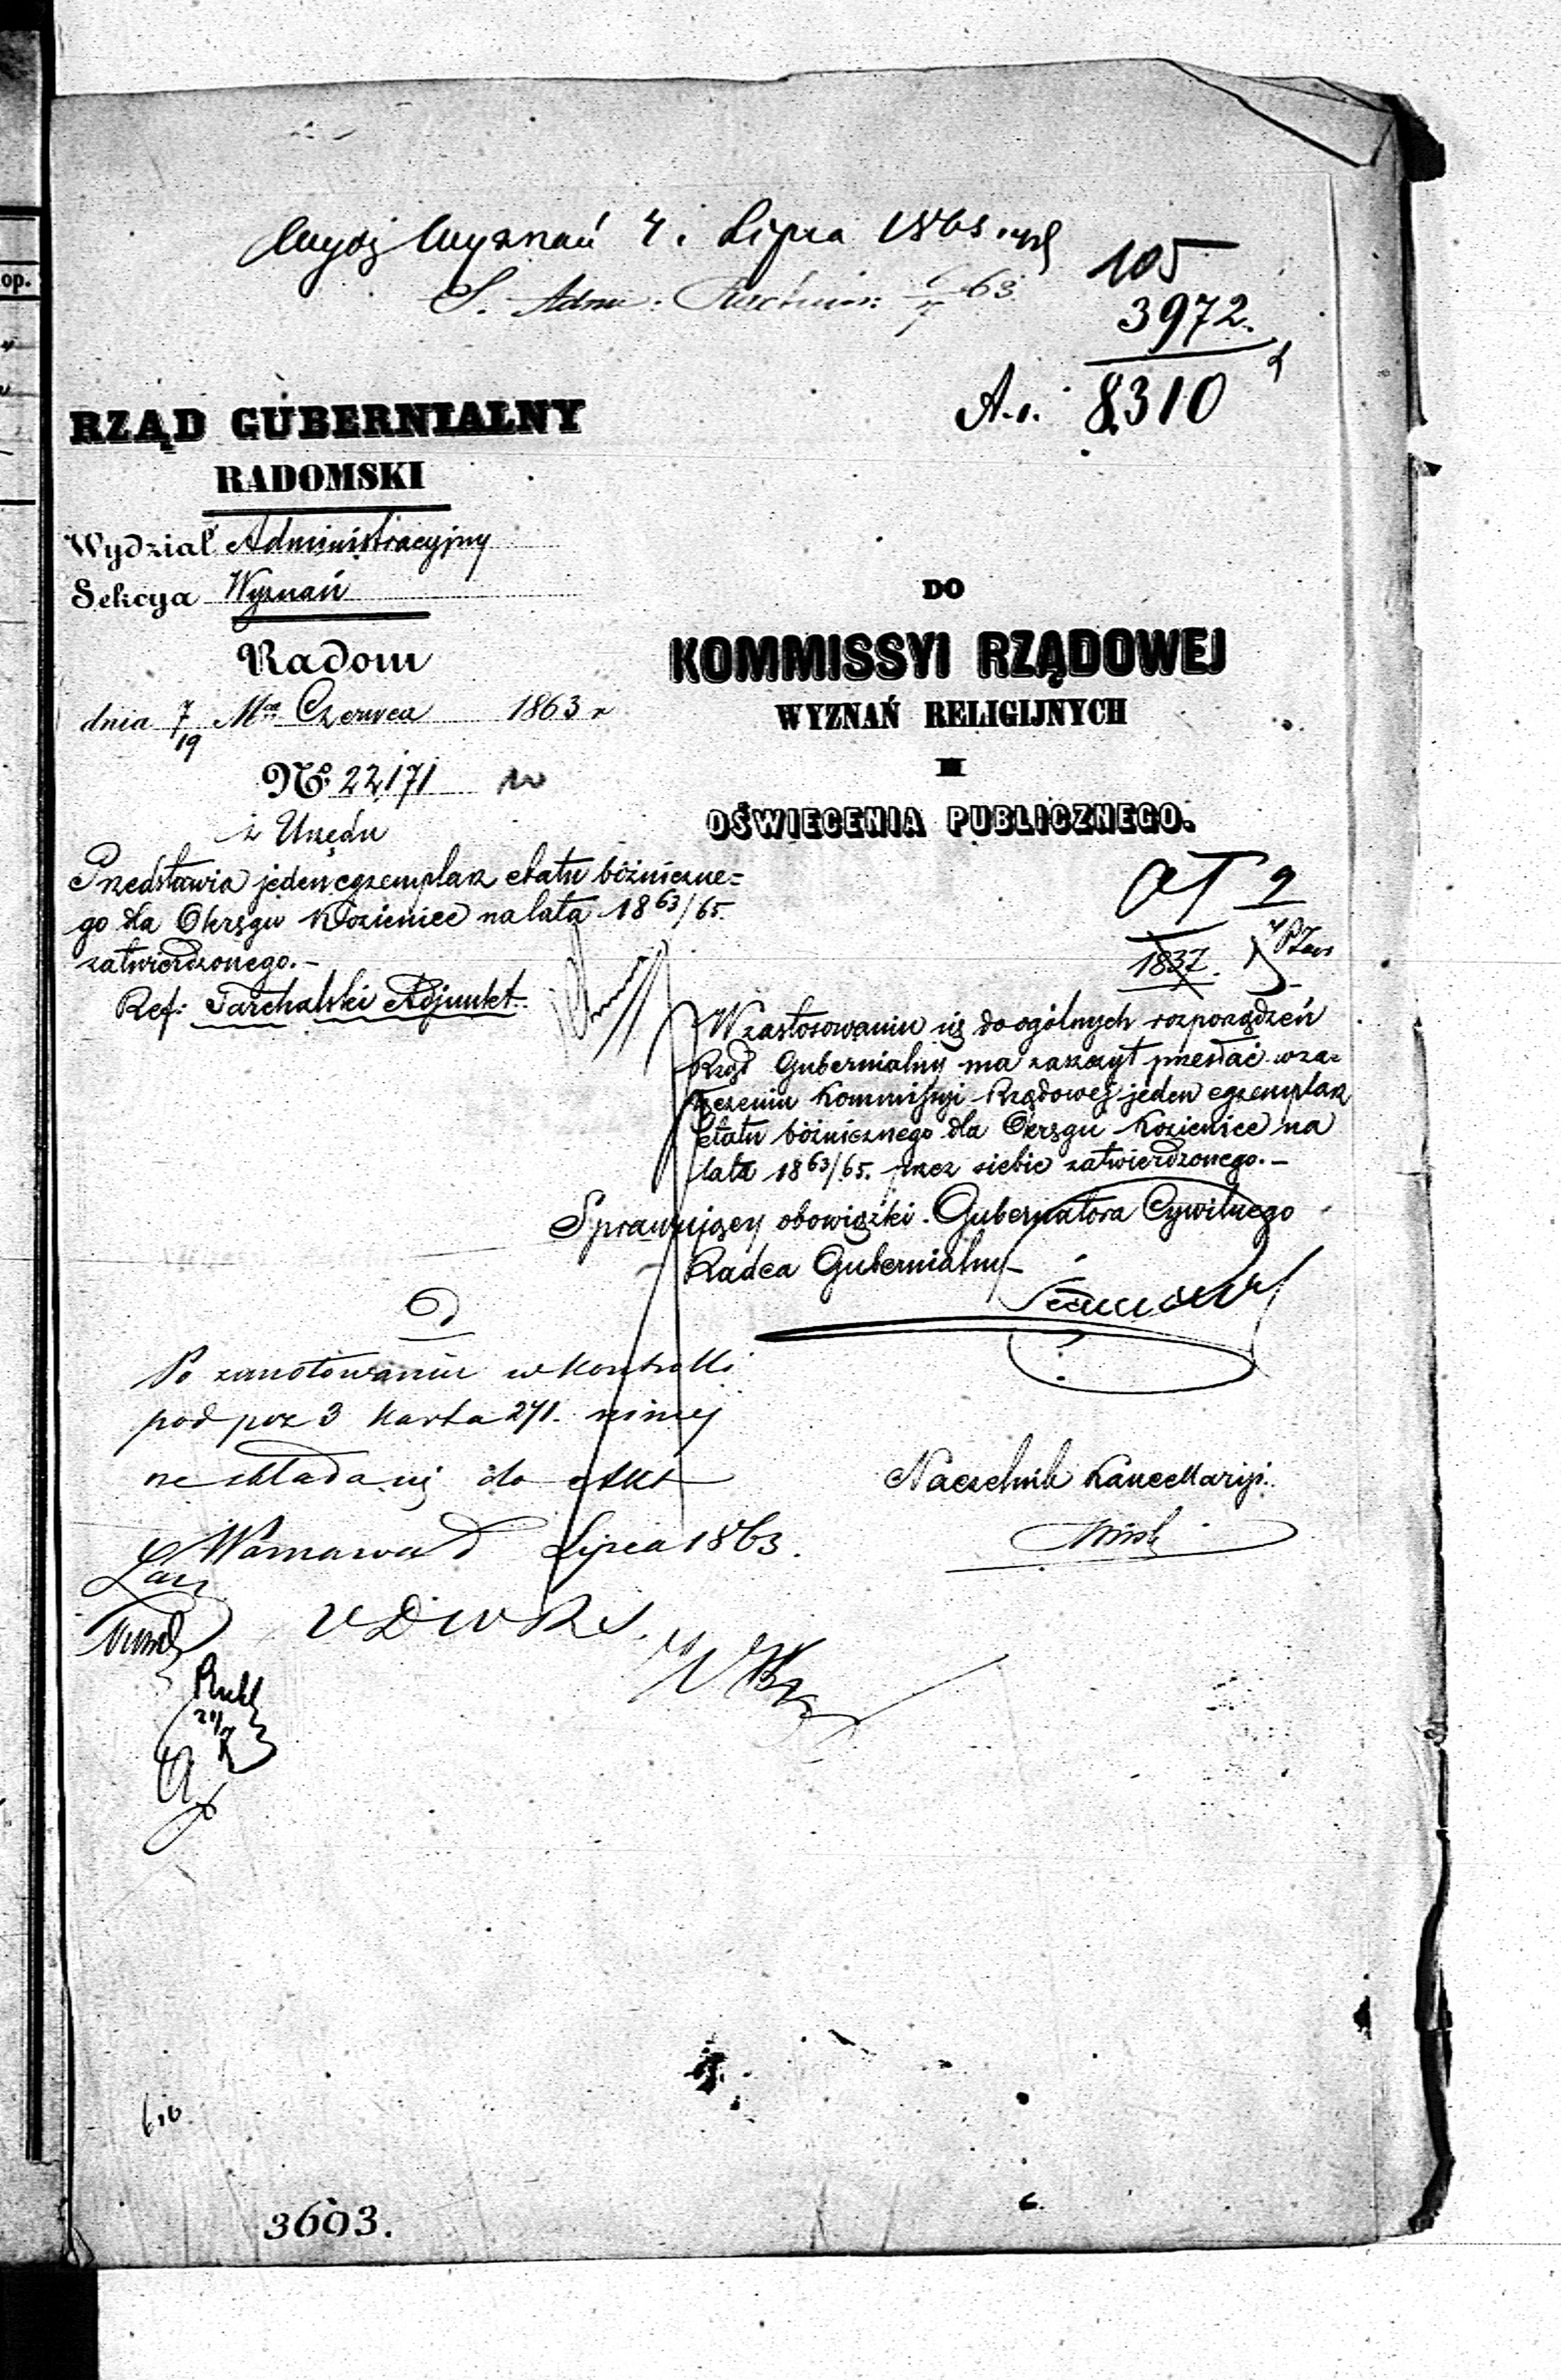 Wyznań 4. Lipca 1863
S. Adm: 63
105
3972.
8310
RZĄD GUBERNIALNY
RADOMSKI
Wydział Administracyjny
Sekcya Wyznań
Radom
dnia 7/19 Mca Czerwca 1863 r
No. 22,171
z Urzędu
Przedstawia jeden egzemplarz etatu bóżniczne=
go dla Okręgu Kozienice na lata 1863/65.
zatwierdzonego.-
Ref: Tarchalski Adjunkt
DO
KOMMISSYI RZĄDOWEJ
WYZNAŃ RELIGIJNYCH
I
OŚWIECENIA PUBLICZNEGO.
1837.
W zastosowaniu się do ogólnych rozporządzeń
Rząd Gubernialny ma zaszczyt przesłać w za=
łączeniu Kommissyi Rządowej jeden egzemplarz
etatu bóżnicznego dla Okręgu Kozienice na
lata 1863/65. przez siebie zatwierdzonego.-
Sprawujący obowiązki Gubernatora Cywilnego
Radca Gubernialny
Po zanotowaniu w kontrolli
pod poz 3 karta 271. niniej
składa się do Akt
Warszawa d Lipca 1863.
Naczelnik Kancellaryi.
3603.